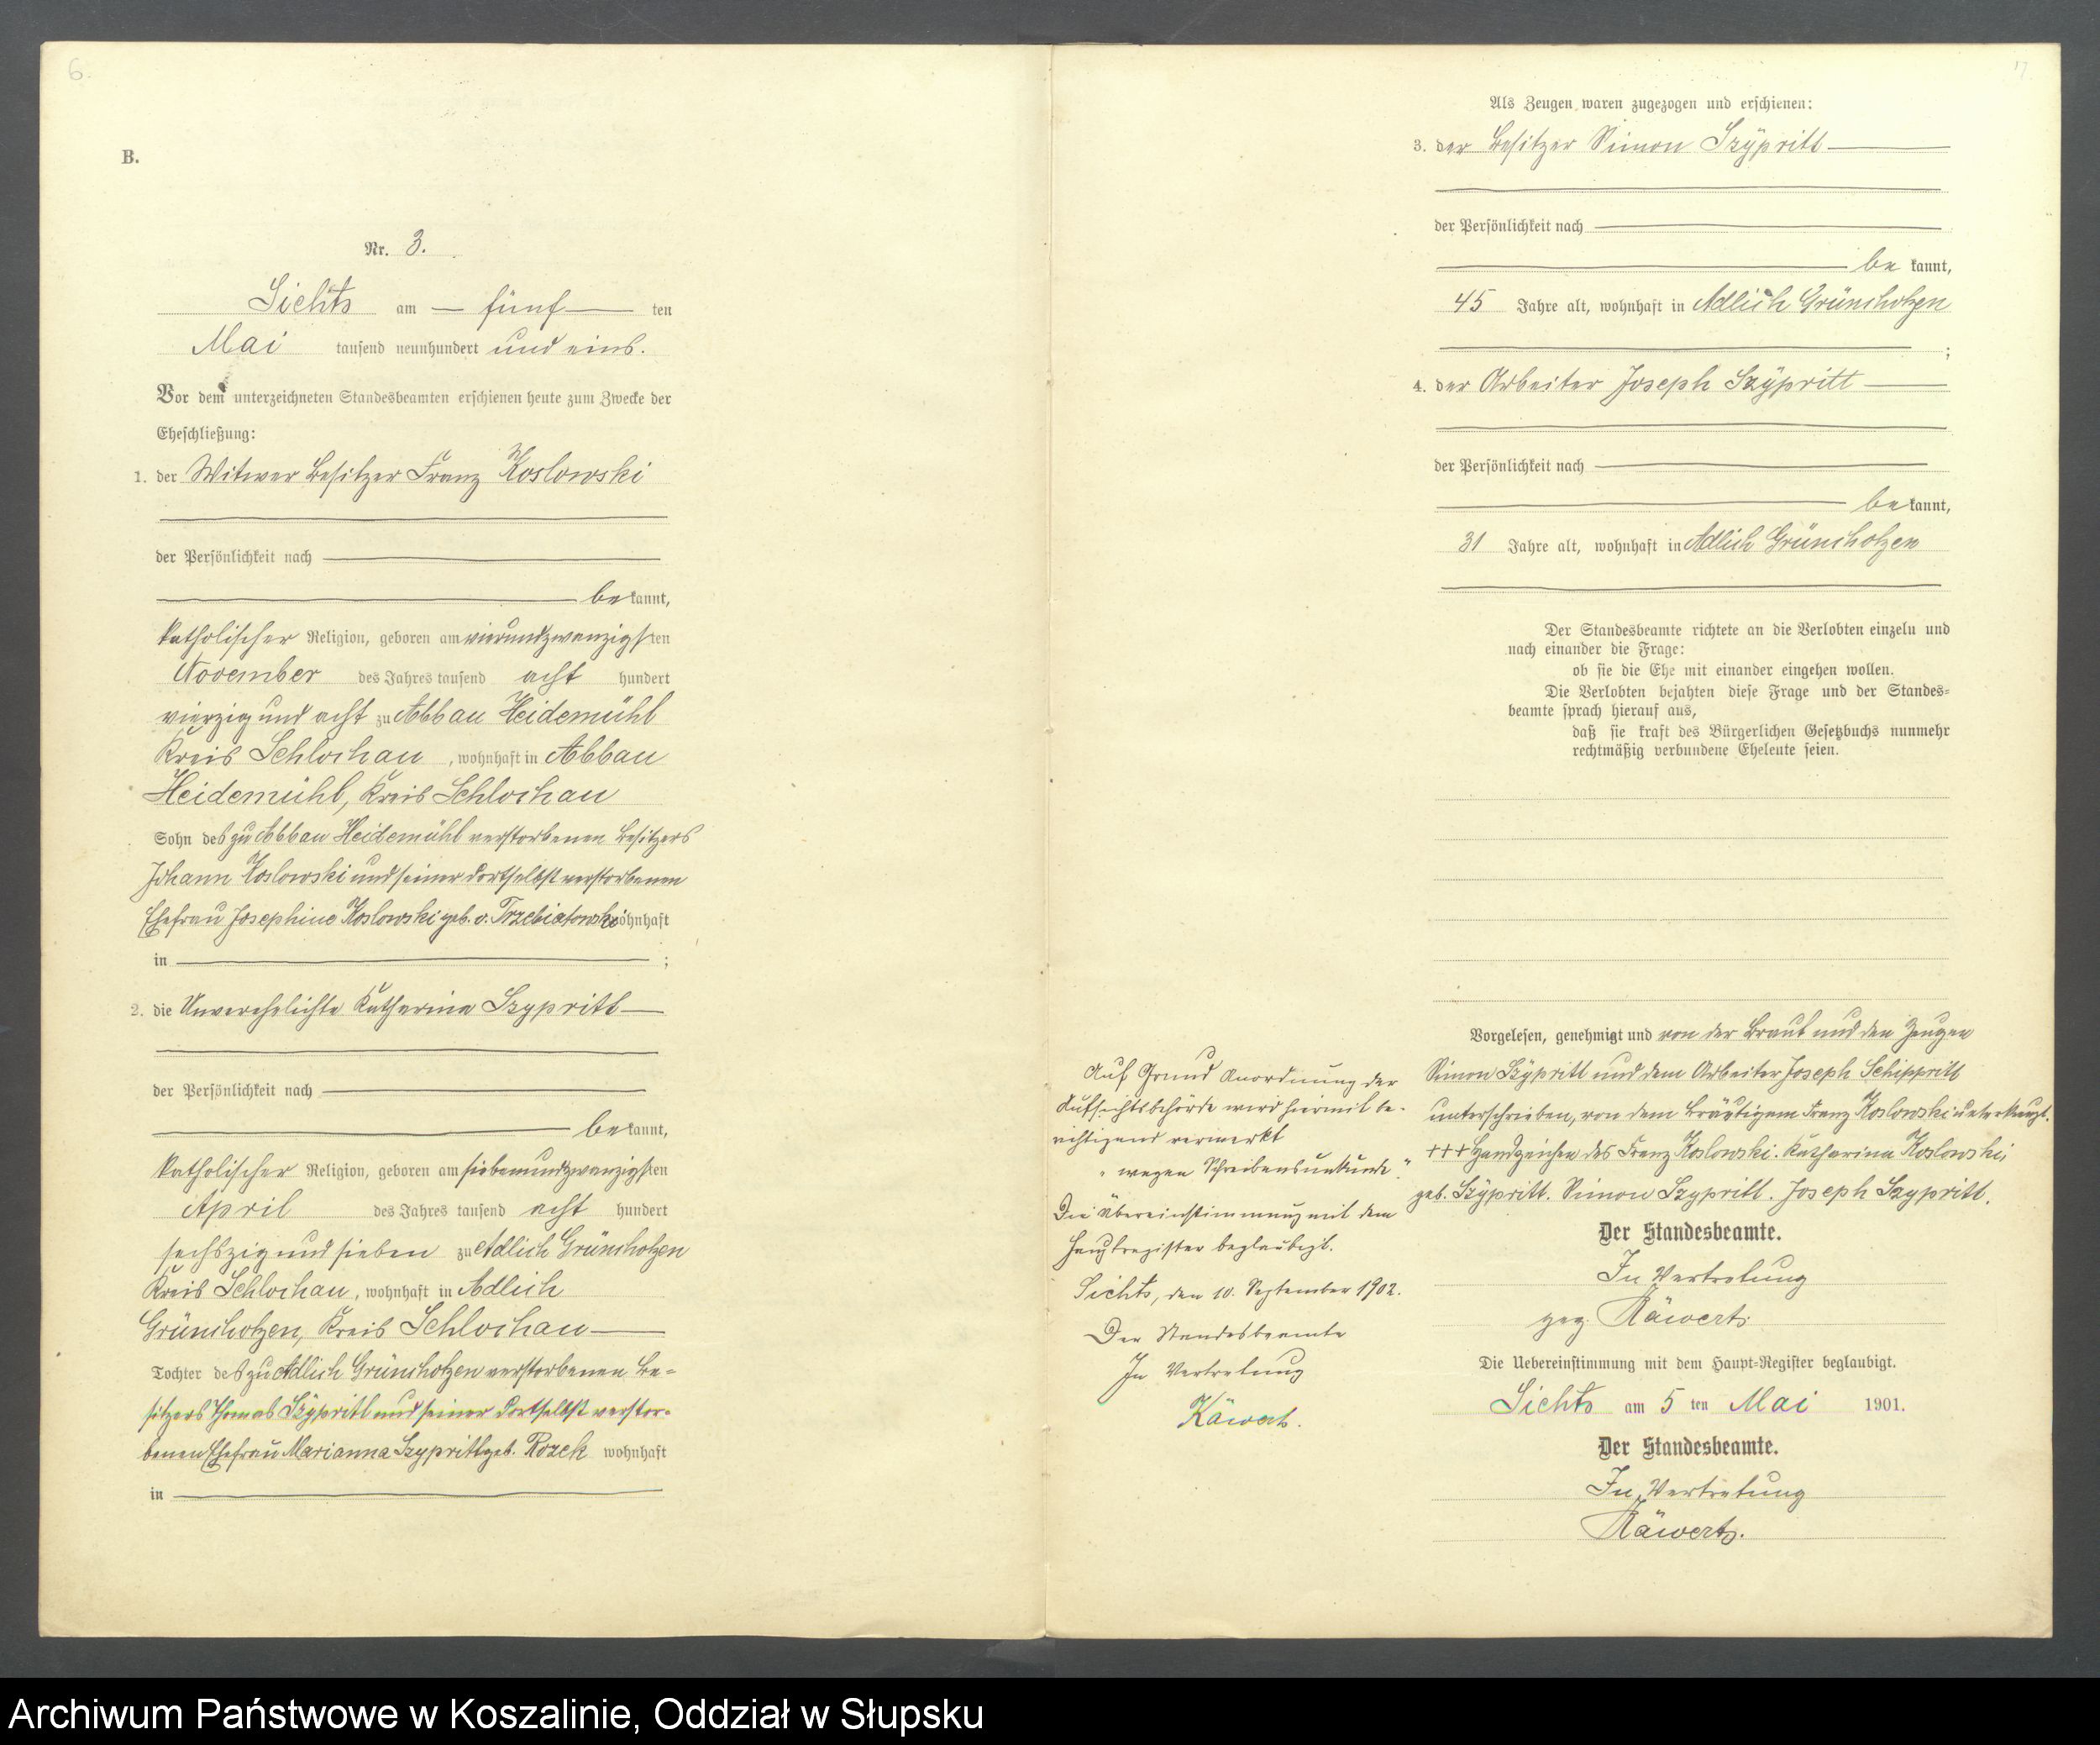 6.
B.
Nr. 3.
Lichts am — fünf — ten
Mai tausend neunhundert und eins.
Vor dem unterzeichneten Standesbeamten erschienen heute zum Zwecke der
Eheschließung:
1. der Witwer Besitzer Franz Koslowski
der Persönlichkeit nach
be kannt,
katholischer Religion, geboren am vierundzwanzigsten
November des Jahres tausend acht hundert
vierzig und acht zu Abbau Heidemühl
Kreis Schlochau, wohnhaft in Abbau
Heidemühl, Kreis Schlochau
Sohn des zu Abbau Heidemühl verstorbenen Besitzers
Johann Koslowski und seiner dortselbst verstorbenen
Ehefrau Josephine Koslowski geb. v. Trzebiatowski wohnhaft
in ;
2. die Unverehelichte Katharina Szypritt
der Persönlichkeit nach
be kannt,
katholischer Religion, geboren am siebenundzwanzigsten
April des Jahres tausend acht hundert
sechszig und sieben zu Adlich Grünchotzen
Kreis Schlochau, wohnhaft in Adlich
Grünchotzen, Kreis Schlochau
Tochter des zu Adlich Grünchotzen verstorbenen Be-
sitzers Thomas Szÿpritt und seiner dortselbst verstor-
benen Ehefrau Marianna Szypritt geb. Rozek wohnhaft
in
7
Als Zeugen waren zugezogen und erschienen:
3. der Besitzer Simon Szÿpritt
der Persönlichkeit nach
be kannt,
45 Jahre alt, wohnhaft in Adlich Grünchotzen
;
4. der Arbeiter Joseph Szÿpritt
der Persönlichkeit nach
be kannt,
31 Jahre alt, wohnhaft in Adlich Grünchotzen
Der Standesbeamte richtete an die Verlobten einzeln und
nach einander die Frage:
ob sie die Ehe mit einander eingehen wollen.
Die Verlobten bejahten diese Frage und der Standes-
beamte sprach hierauf aus,
daß sie kraft des Bürgerlichen Gesetzbuchs nunmehr
rechtmäßig verbundene Eheleute seien.
Vorgelesen, genehmigt und von der Braut und den Zeugen
Simon Szÿpritt und dem Arbeiter Joseph Schippritt
unterschrieben, von dem Bräutigam Franz Koslowski unterkreuzt.
+++ Handzeichen des Franz Koslowski. Katharina Koslowski,
geb. Szÿpritt. Simon Szypritt. Joseph Szypritt.
Der Standesbeamte.
In Vertretung
gez. Käwert.
Die Uebereinstimmung mit dem Haupt-Register beglaubigt.
Lichts am 5 ten Mai 1901.
Der Standesbeamte.
In Vertretung
Käwert.
Auf Grund Anordnung der
Aufsichtsbehörde wird hiermit be-
richtigend vermerkt
„wegen Schreibensunkunde“.
Die Übereinstimmung mit dem
Hauptregister beglaubigt.
Lichts, den 10. September 1902.
Der Standesbeamte
In Vertretung
Käwert.
Archiwum Państwowe w Koszalinie, Oddział w Słupsku